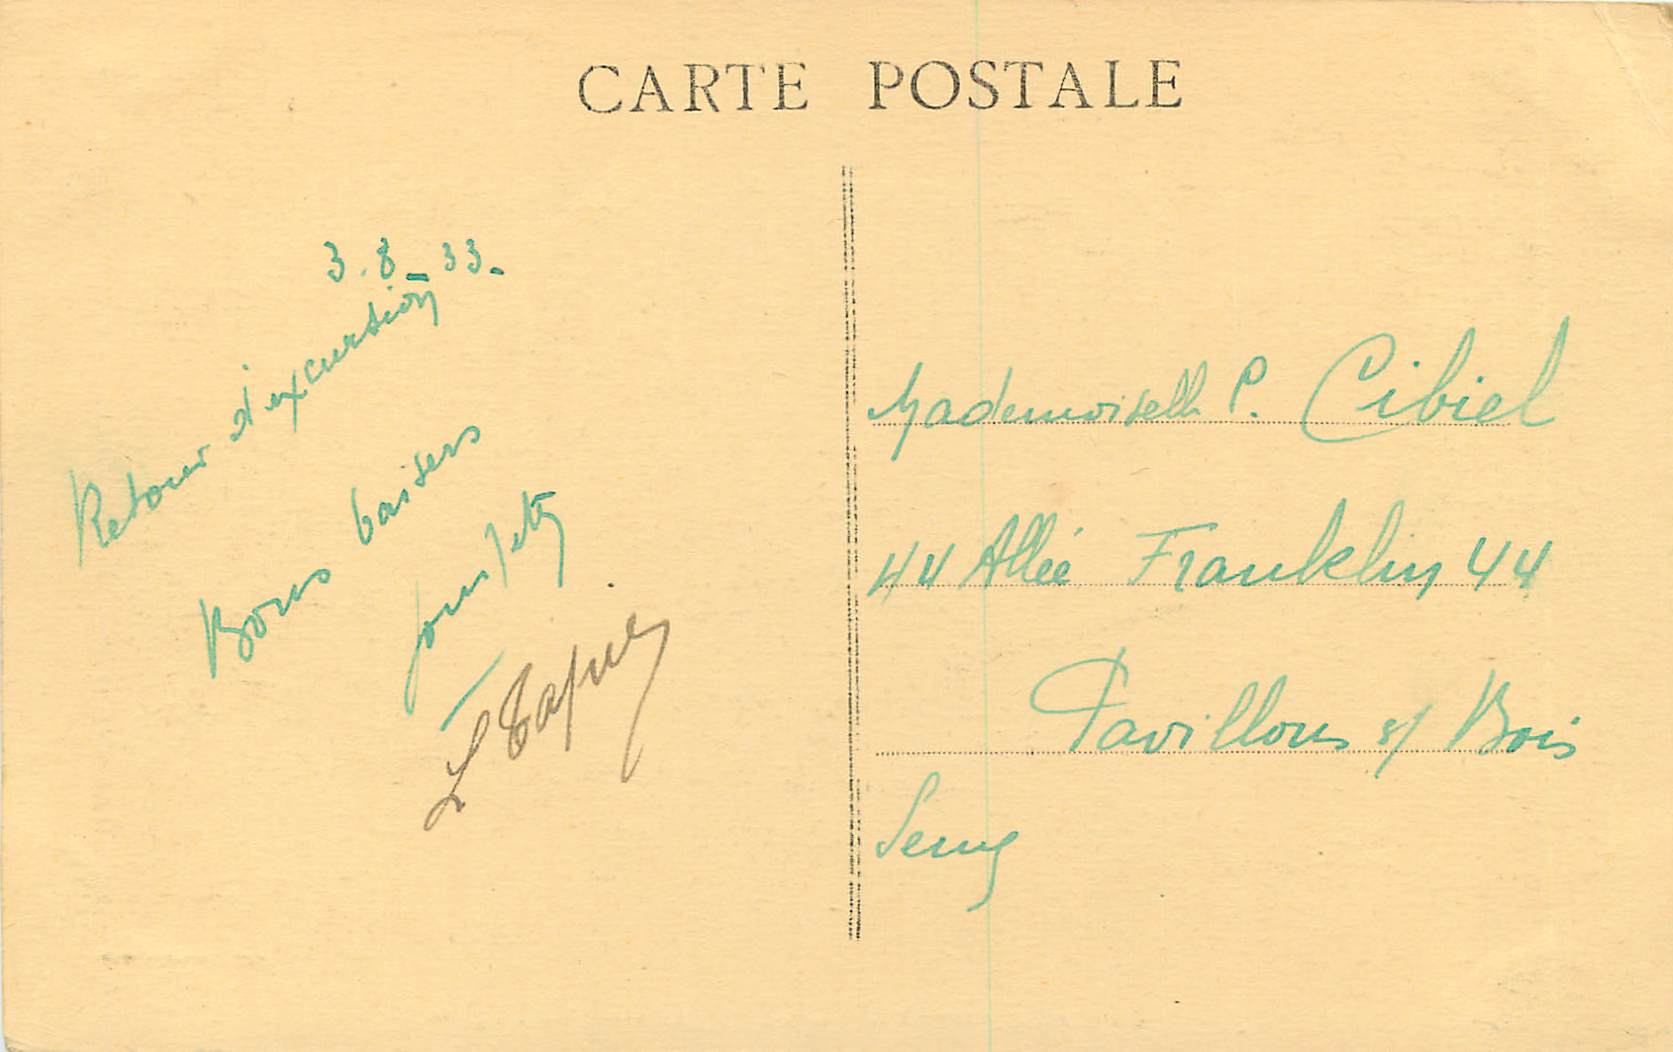 CARTE POSTALE
3.8_33.
Retour d'excursion
Bons baisers
L
Mademoiselle P. Cibiel
44 Allée Franklin 44
Pavillons s/ Bois
Seine